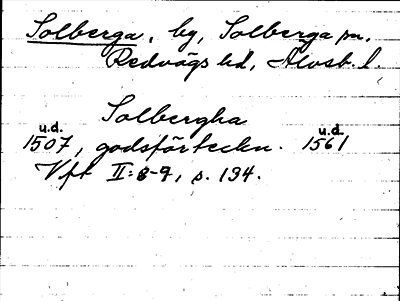 Solberga, by, Solberga sn.
Redvägs hd, Älvsb. l.
Solbergha
u.d. u.d.
1507, godsförteckn. 1561
Vft II:8-9, s. 134.